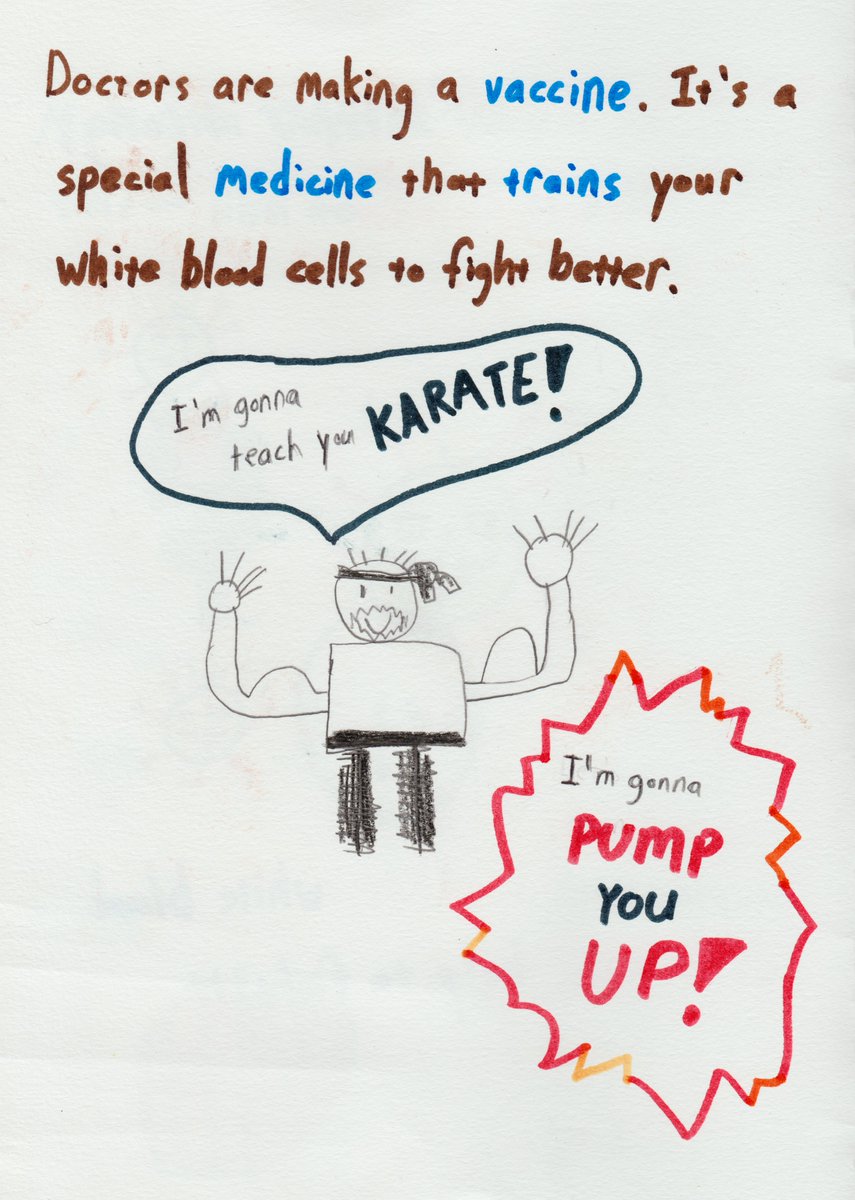 Doctors are making a vaccine. It's a
special medicine that trains your
white blood cells to fight better.
I'm gonna
teach you KARATE!
I'm gonna
PUMP
YOU
UP!